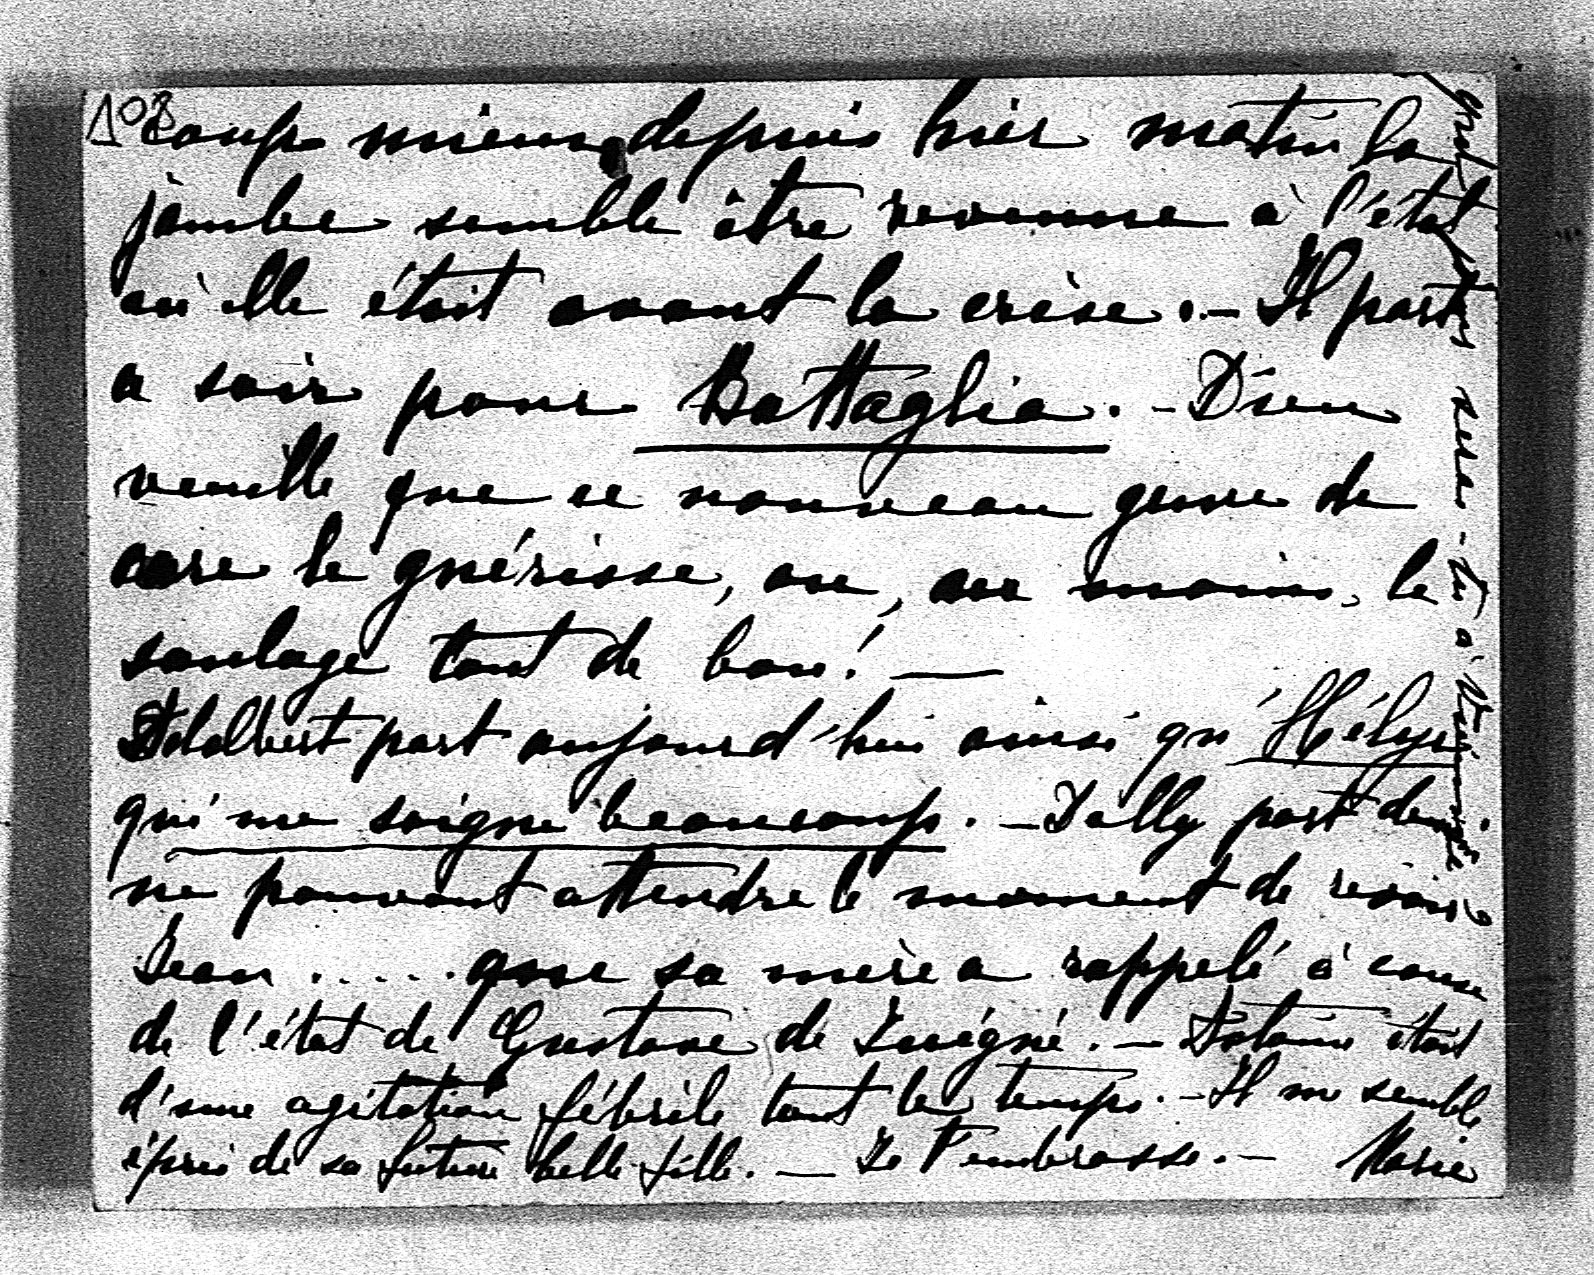 103
coup mieux, depuis hier matin la
jambe semble être revenue à l'état
où elle était avant la crise. — Il part
ce soir pour Battaglia. — Dieu
veuille que ce nouveau genre de
cure le guérisse, ou, au moins, le
soulage tout de bon! —
Adalbert part aujourd'hui ainsi qu'Hélyn
qui me soigne beaucoup. — Dolly part demain
ne pouvant attendre le moment de revoir
Jean ..... que sa mère a rappelé à cause
de l'état de Gustave de . — Antoine était
d'une agitation fébrile tout le temps. — Il me semble
épris de sa future belle fille. — Je t'embrasse. — Marie
seras-tu à